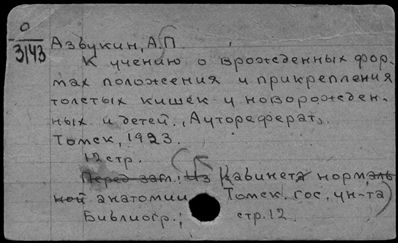 0
3143
Азбукин, А.П.
К учению о врожденных фор-
мах положения и прикрепления
толстых кишек у новорожден-
ных и детей. (Автореферат).
Томск, 1923.
12 стр.
Перед загл.: (Из Кабинета нормаль-
ной анатомии Томск. гос. ун-та)
Библиогр.: стр. 12.